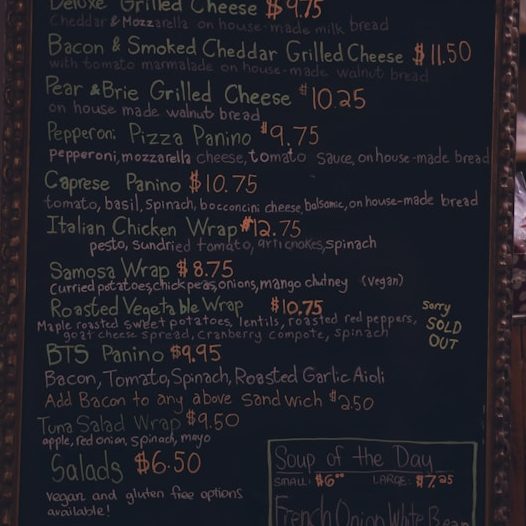 Deluxe Grilled Cheese $9.75
Cheddar & Mozzarella on house-made milk bread
Bacon & Smoked Cheddar Grilled Cheese $11.50
with tomato marmalade on house-made walnut bread
Pear & Brie Grilled Cheese $10.25
on house made walnut bread
Pepperoni Pizza Panino $9.75
pepperoni, mozzarella cheese, tomato sauce, on house-made bread
Caprese Panino $10.75
tomato, basil, spinach, bocconcini cheese, balsamic, on house-made bread
Italian Chicken Wrap $12.75
pesto, sundried tomato, artichokes, spinach
Samosa Wrap $8.75
Curried potatoes, chick peas, onions, mango chutney (vegan)
Roasted Vegetable Wrap $10.75
Maple roasted sweet potatoes, lentils, roasted red peppers,
goat cheese spread, cranberry compote, spinach
Sorry
SOLD
OUT
BTS Panino $9.95
Bacon, Tomato, Spinach, Roasted Garlic Aioli
Add Bacon to any above sandwich $2.50
Tuna Salad Wrap $9.50
apple, red onion, spinach, mayo
Salads $6.50
vegan and gluten free options
available!
Soup of the Day
SMALL: $6.00 LARGE: $7.25
French Onion White Bean